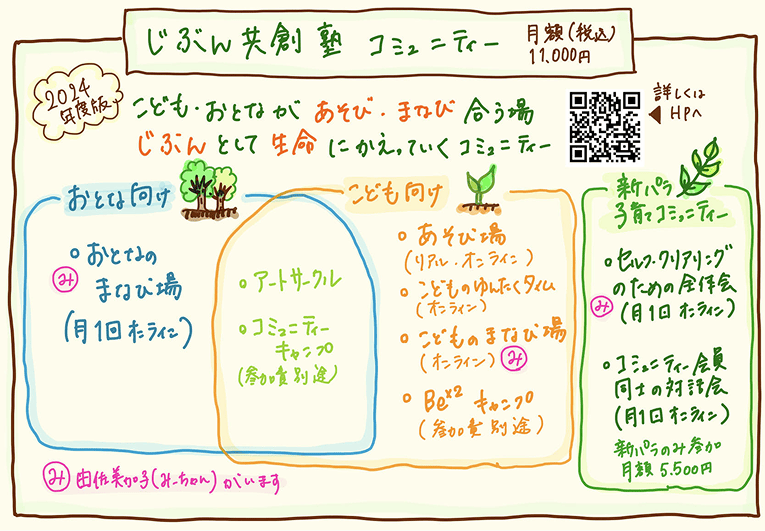 じぶん共創塾 コミュニティー
月額(税込)
11,000円
2024
年度版
こども・おとなが あそび・まなび 合う場
じぶんとして生命にかえっていくコミュニティー
詳しくは
HPへ
おとな向け
こども向け
新パラ
子育てコミュニティー
おとなの
み
まなび場
(月1回オンライン)
アートサークル
コミュニティー
キャンプ
(参加費別途)
あそび場
(リアル・オンライン)
こどものゆんたくタイム
(オンライン)
こどものまなび場
(オンライン) み
Be×2 キャンプ
(参加費別途)
セルフ・クリアリング
のための全体会
み (月1回オンライン)
コミュニティー会員
同士の対話会
(月1回オンライン)
新パラのみ参加
月額 5,500円
み 由佐美加子(みーちゃん)がいます